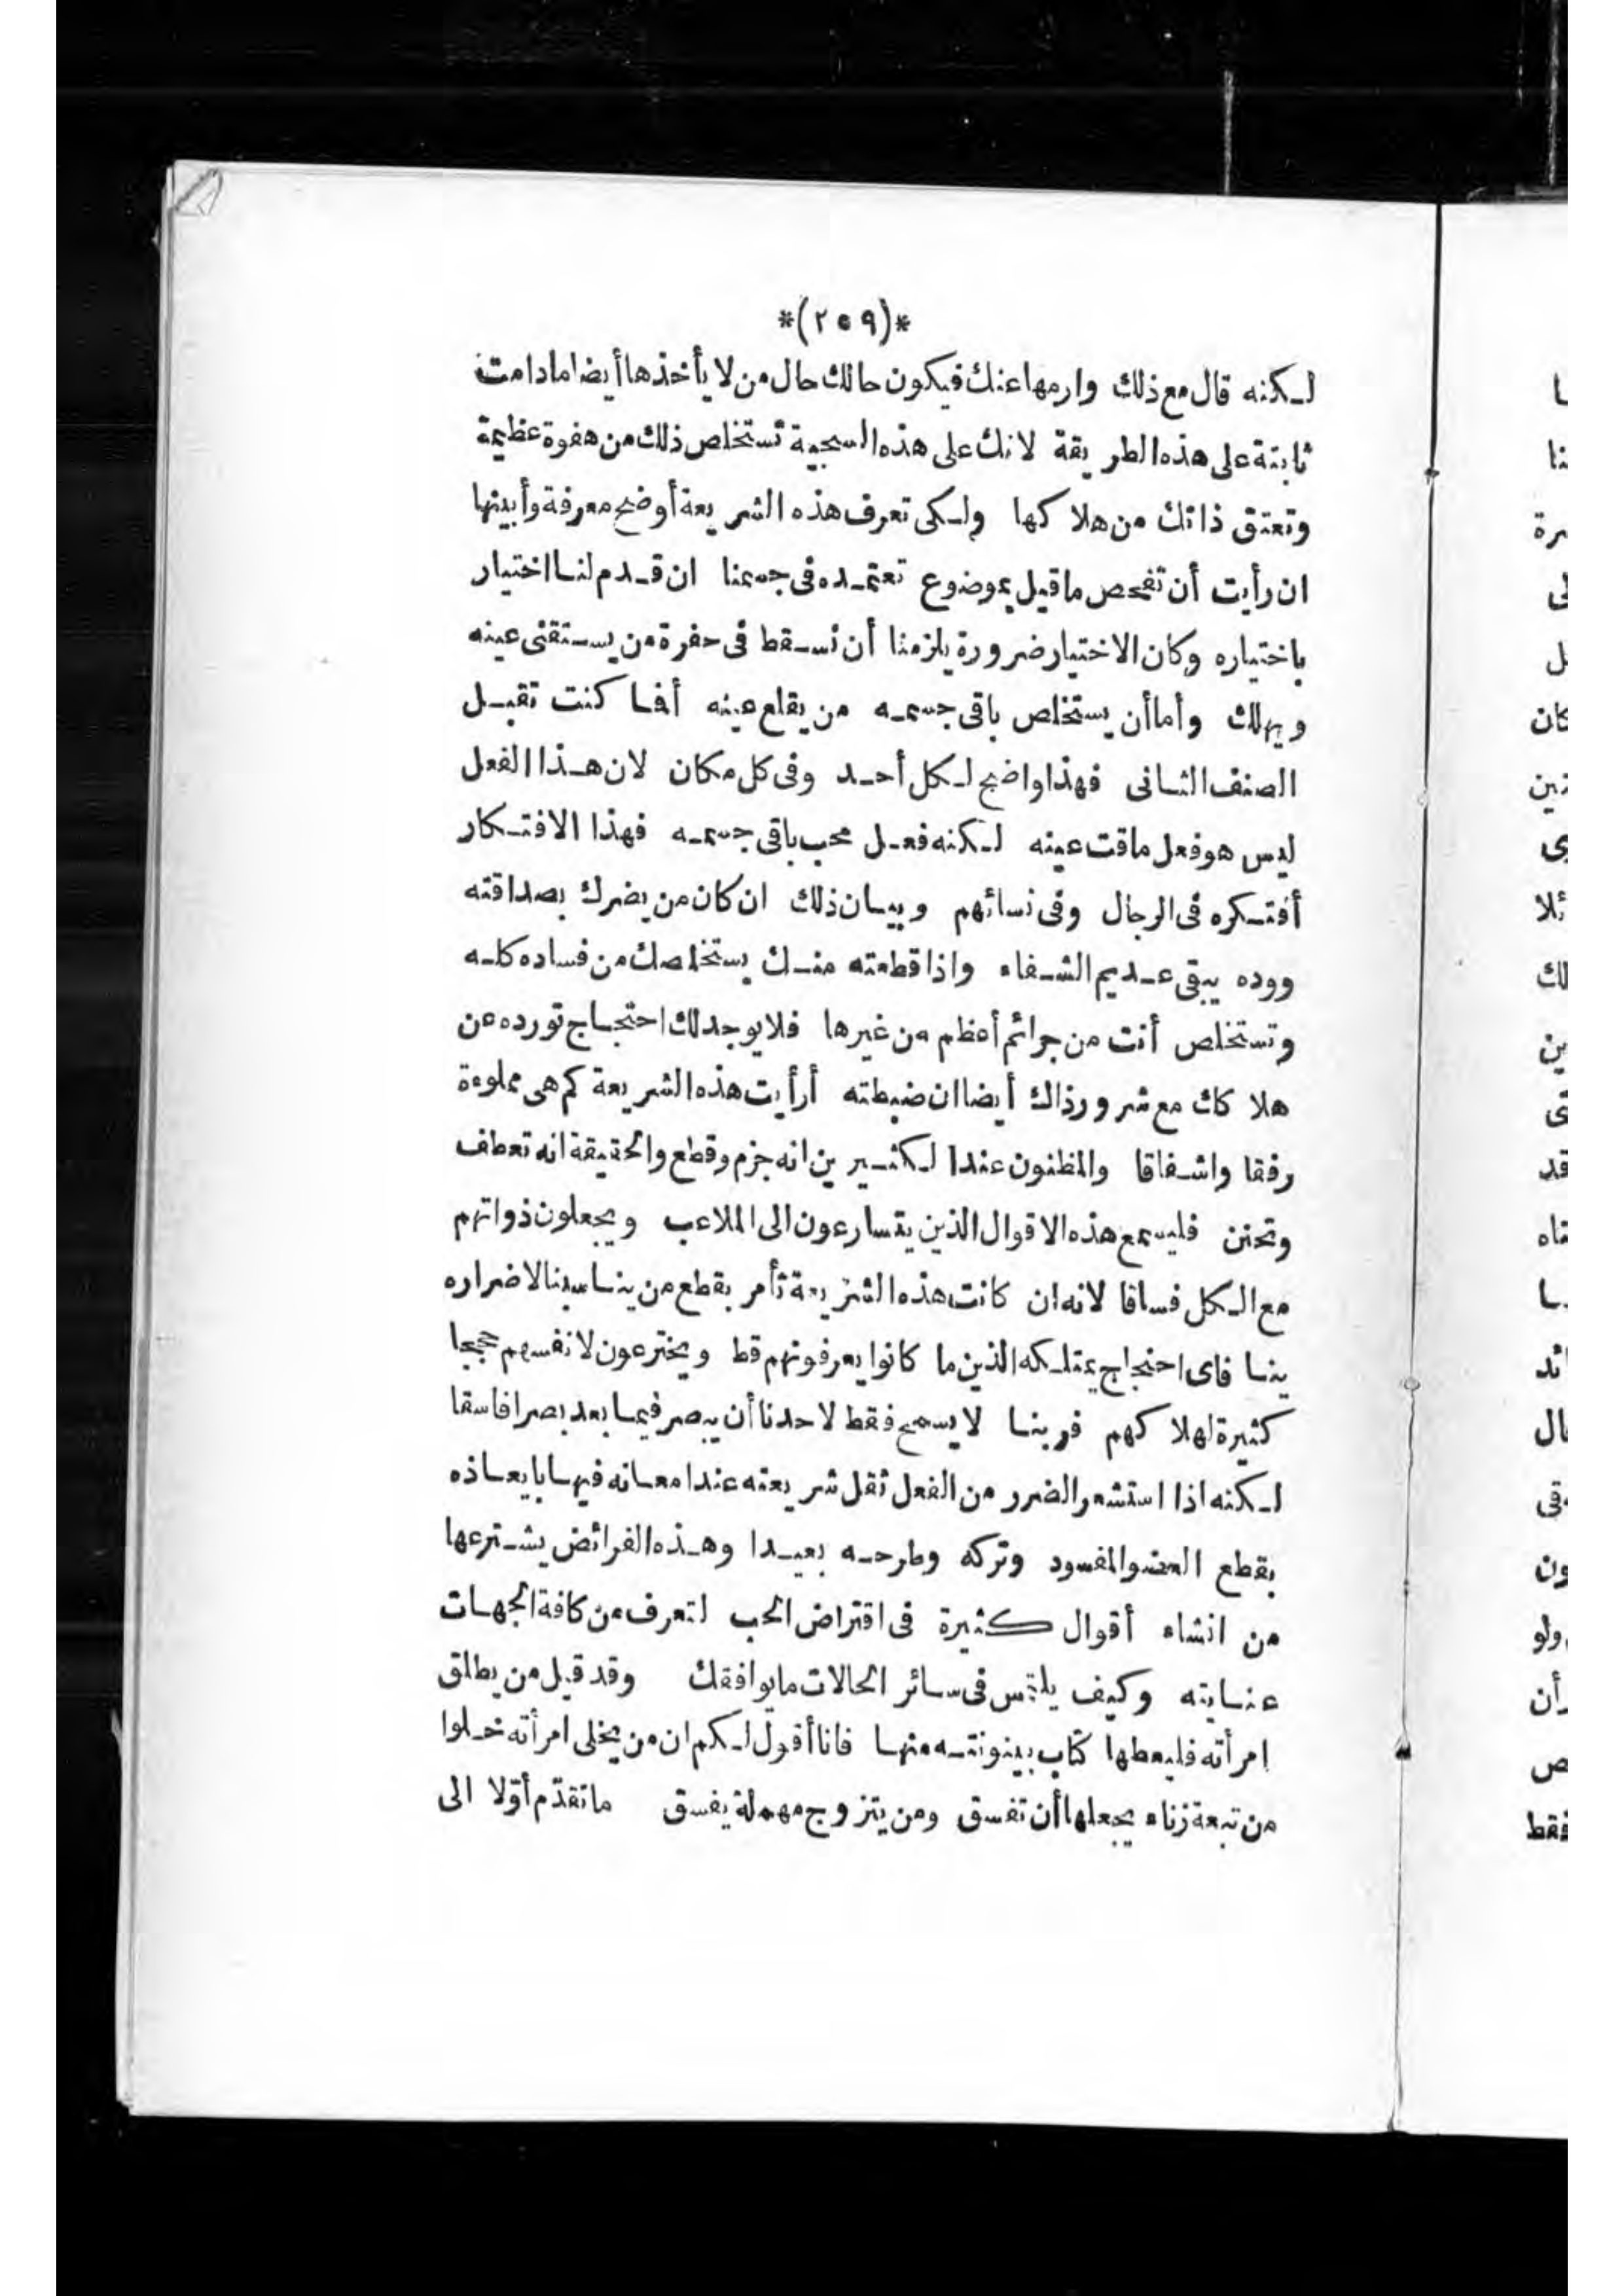 *(٢٥٩)*
لكنه قال مع ذلك وارمها عنك فيكون حالك حال من لا يأخذها أيضا مادامت
ثابتة على هذه الطريقة لانك على هذه السجية تستخلص ذلك من هفوة عظيمة
وتعتق ذاتك من هلاكها ولكى تعرف هذه الشريعة أوضح معرفة وأبينها
ان رأيت أن تفحص ماقيل بموضوع تعتمده فى جسمنا ان قدم لنا اختيار
باختياره وكان الاختيار ضرورة يلزمنا أن نسقط فى حفرة من يستقنى عينه
ويهلك وأما أن يستخلص باقى جسمه من يقلع عينه أفما كنت تقبل
الصنف الثانى فهذا واضح لكل أحد وفى كل مكان لان هذا الفعل
ليس هو فعل ماقت عينه لكنه فعل محب باقى جسمه فهذا الافتكار
أفتكره فى الرجال وفى نسائهم وبيان ذلك ان كان من يضرك بصداقته
ووده يبقى عديم الشفاء واذا قطعته منك يستخلصك من فساده كله
وتستخلص أنت من جرائم أعظم من غيرها فلا يوجد لك احتجاج تورده عن
هلاكك مع شرور ذاك أيضا ان ضبطته أرأيت هذه الشريعة كم هى مملوءة
رفقا واشفاقا والمظنون عند الكثيرين انه جزم وقطع والحقيقة انه تعطف
وتحنن فليسمع هذه الاقوال الذين يتسارعون الى الملاعب ويجعلون ذواتهم
مع الكل فساقا لانه ان كانت هذه الشريعة تأمر بقطع من يناسبنا لاضراره
بنا فاى احتجاج يمتلكه الذين ما كانوا يعرفونهم قط ويخترعون لانفسهم حججا
كثيرة لهلاكهم فربنا لا يسمح فقط لاحدنا أن يبصر فيما بعد بصرا فاسقا
لكنه اذا استشعر الضرر من الفعل ثقل شريعته عند امعانه فيها بايعاذه
بقطع العضو المفسود وتركه وطرحه بعيدا وهذه الفرائض يشترعها
من انشاء أقوال كثيرة فى اقتراض الحب لتعرف من كافة الجهات
عنايته وكيف يلتمس فى سائر الحالات ما يوافقك وقد قيل من يطلق
امرأته فليعطها كتاب بينونته منها فانا أقول لكم ان من يخلى امرأته خلوا
من تبعة زناء يجعلها أن تفسق ومن يتزوج مهملة يفسق ما تقدّم أوّلا الى